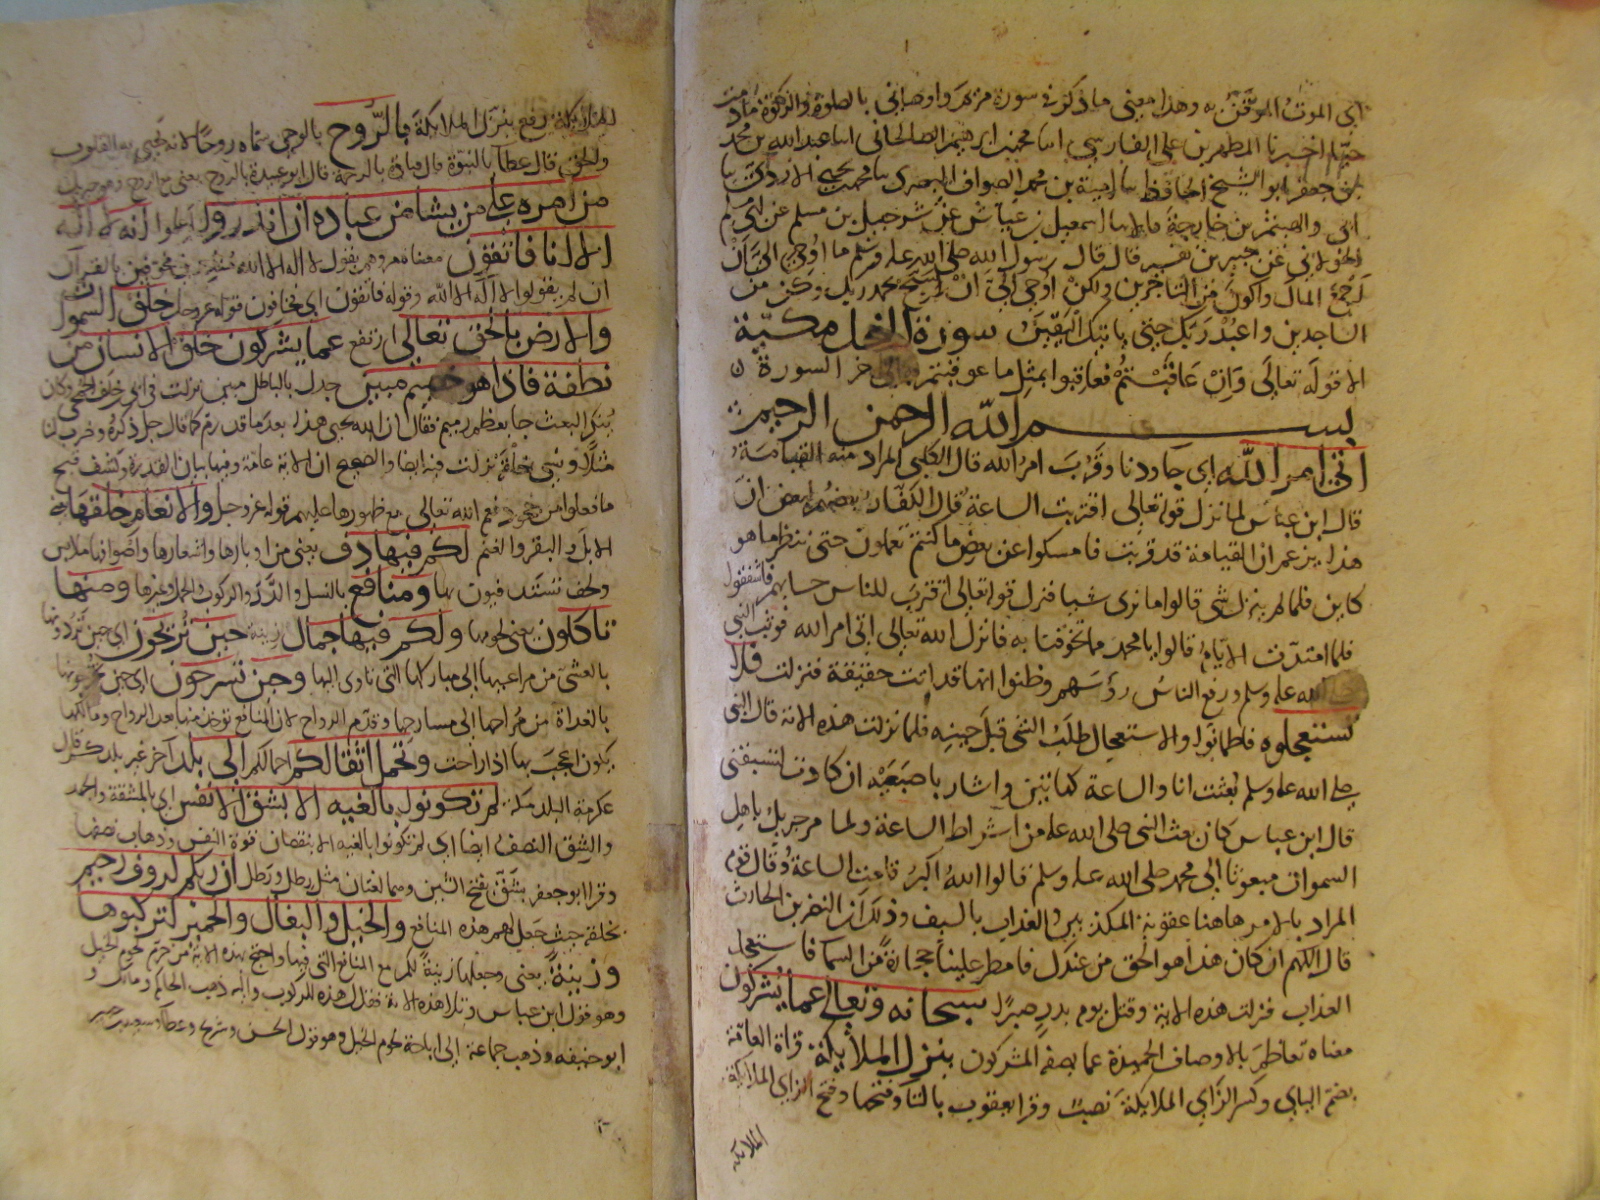 اى الموت الموقن به وهذا معنى ما ذكر فى سورة مريم واوصانى بالصلوة والزكوة ما دمت
حيا اخبرنا المطهر بن على الفارسى اسا محمد بن ابرهيم الصالحانى اسا عبد الله بن محمد
بن جعفر ابو الشيخ الحافظ سا امية بن محمد الصواف البصرى سا محمد بن يحيى الازدى سا
ابى والهيثم بن خارجة قالا سا اسمعيل بن عياش عن شرحبيل بن مسلم عن ابى مسلم
الخولانى عن جبير بن نفير قال قال رسول الله صلى الله عليه وسلم ما اوحى الى ان
اجمع المال واكون من التاجرين ولكن اوحى الى ان سبح بحمد ربك وكن من
الساجدين واعبد ربك حتى ياتيك اليقين سورة النحل مكية
الا قوله تعالى وان عاقبتم فعاقبوا بمثل ما عوقبتم به الى اخر السورة
بسم الله الرحمن الرحيم
اتى امر الله اى جا ودنا وقرب امر الله قال الكلبى المراد منه القيامة
قال ابن عباس لما نزل قوله تعالى اقتربت الساعة قال الكفار بعضهم لبعض ان
هذا يزعم ان القيامة قد قربت فامسكوا عن بعض ما كنتم تعملون حتى ننظر ما هو
كاين فلما لم ينزل شى قالوا ما نرى شيا فنزل قوله تعالى اقترب للناس حسابهم فاشفقوا
فلما امتدت الايام قالوا يا محمد ما تخوفنا به فانزل الله تعالى اتى امر الله فوثب النبى
صلى الله عليه وسلم ورفع الناس رؤسهم وظنوا انها قد اتت حقيقة فنزلت فلا
تستعجلوه فاطمانوا والاستعجال طلب الشى قبل حينه فلما نزلت هذه الاية قال النبى
صلى الله عليه وسلم بعثت انا والساعة كهاتين واشار باصبعيه ان كادت لتسبقنى
قال ابن عباس كان بعث النبى صلى الله عليه من اشراط الساعة ولما مر جبريل باهل
السموات مبعوثا الى محمد صلى الله عليه وسلم قالوا الله اكبر قامت الساعة وقال قوم
المراد بالامر هاهنا عقوبة المكذبين والعذاب بالسيف وذلك ان النضر بن الحارث
قال اللهم ان كان هذا هو الحق من عندك فامطر علينا حجارة من السما فاستعجل
العذاب فنزلت هذه الاية وقتل يوم بدر صبرا سبحانه وتعالى عما يشركون
معناه تعاظم بالاوصاف الحميدة عما يصفه المشركون ينزل الملايكة قراة العامة
بضم الياى وكسر الزاى الملايكة نصب وقرا يعقوب بالتا وفتحها وفتح الزاى الملايكة
الملايكة
الملايكة رفع ينزل الملايكة بالروح بالوحى سماه روحا لانه تحيى به القلوب
والحق قال عطا بالنبوة قال قتادة بالرحمة قال ابو عبيدة بالروح يعنى مع الروح وهو جبريل
من امره على من يشا من عباده ان انذروا اعلموا انه لا اله
الا انا فاتقون معناه مروهم بقول لا اله الا الله منذرين مخوفين بالقران
ان لم يقولوا لا اله الا الله وقوله فاتقون اى فخافون قوله عز وجل خلق السموات
والارض بالحق تعالى ارتفع عما يشركون خلق الانسان من
نطفة فاذا هو خصيم مبين جدل بالباطل مبين نزلت فى ابى بن خلف الجمحى وكان
ينكر البعث جا بعظم رميم فقال ان الله يحيى هذا بعد ما قد رم كما قال جل ذكره وضرب لنا
مثلا ونسى خلقه نزلت فيه ايضا والصحيح ان الاية عامة وفيها بيان القدرة وكشف قبيح
ما فعلوا من جحود نعم الله تعالى مع ظهورها عليهم قوله عز وجل والانعام خلقها يعنى
الابل والبقر والغنم لكم فيها دف يعنى من اوبارها واشعارها واصوافها ملابس
ولحف تستدفيون بها ومنافع بالنسل والدر والركوب والحمل وغيرها ومنها
تاكلون يعنى لحومها ولكم فيها جمال زينة حين تريحون اى حين تردونها
بالعشى من مراعيها الى مباركها التى تاوى اليها وحين تسرحون اى حين تخرجونها
بالغداة من مراحها الى مسارحها وقدم الرواح لان المنافع توخذ منها بعد الرواح ومالكها
يكون اعجب بها اذا راحت وتحمل اثقالكم احمالكم الى بلد اخر غير بلدكم قال
عكرمة البلد مكة لم تكونوا بالغيه الا بشق الانفس اى بالمشقة والجهد
والشق النصف ايضا اى لم تكونوا بالغيه الا بنقصان قوة النفس وذهاب نصفها
وقرا ابو جعفر بشق بفتح الشين وهما لغتان مثل رطل ورطل ان ربكم لروف رحيم
بخلقه حيث جعل لهم هذه المنافع والخيل والبغال والحمير لتركبوها
وزينة يعنى وجعلها زينة لكم مع المنافع التى فيها واحتج بهذه الاية من حرم لحوم الخيل
وهو قول ابن عباس وتلا هذه الاية فقال هذه للركوب واليه ذهب الحاكم ومالك و
ابو حنيفة وذهب جماعة الى اباحة لحوم الخيل وهو قول الحسن وشريح وعطا وسعيد بن جبير